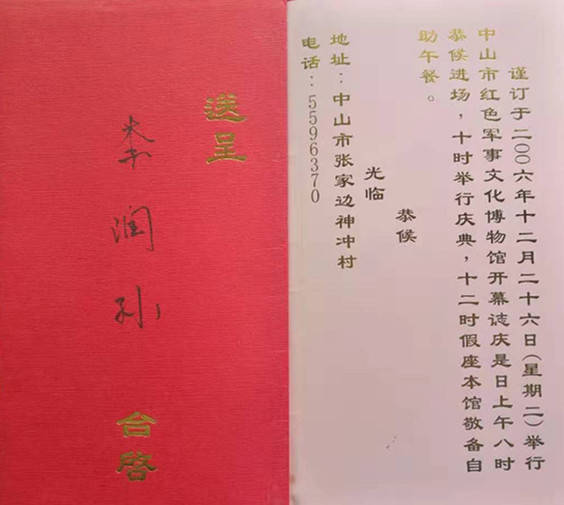 送呈
李润孙
台启
谨订于二〇〇六年十二月二十六日(星期二)举行
中山市红色军事文化博物馆开幕誌庆是日上午八时
恭候进场，十时举行庆典，十二时假座本馆敬备自
助午餐。
恭候
光临
地址：中山市张家边神冲村
电话：5596370